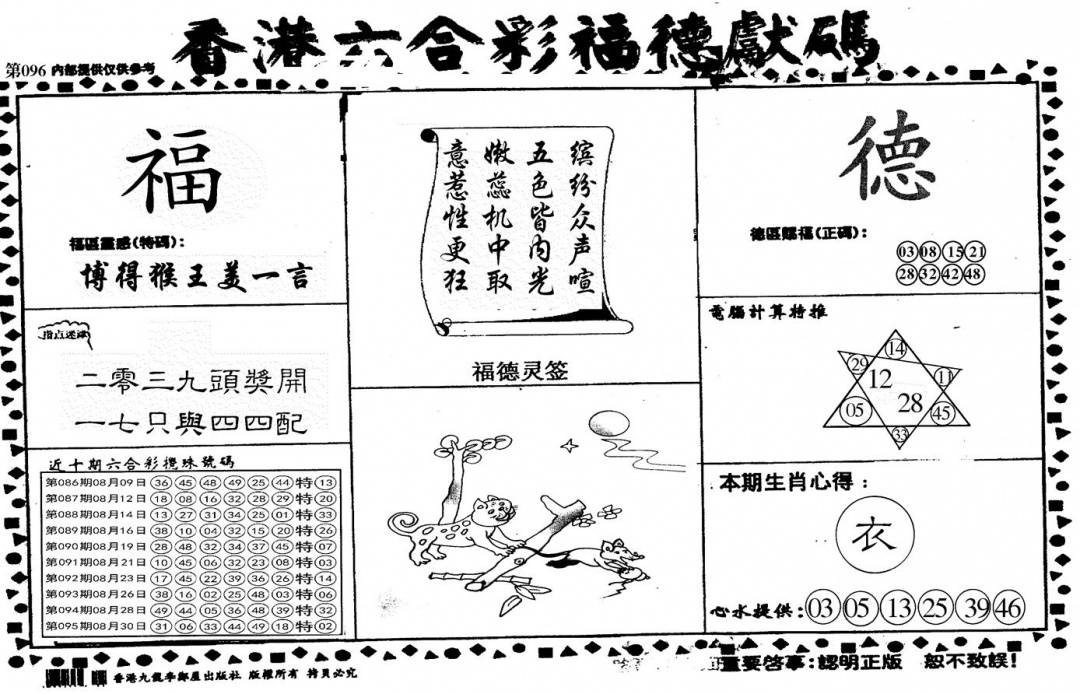 香港六合彩福德獻碼
第096 内部提供仅供参考
福
福區靈感(特碼):
博得猴王美一言
指点迷津
二零三九頭獎開
一七只與四四配
近十期六合彩攪珠號碼
第086期08月09日 36 45 48 49 25 44 特 13
第087期08月12日 18 08 16 32 28 29 特 20
第088期08月14日 13 27 31 34 25 01 特 33
第089期08月16日 38 10 04 32 15 20 特 26
第090期08月19日 28 48 32 34 37 45 特 07
第091期08月21日 10 45 06 32 23 08 特 03
第092期08月23日 17 45 22 39 36 26 特 14
第093期08月26日 38 16 02 25 48 03 特 06
第094期08月28日 49 44 05 36 48 39 特 32
第095期08月30日 31 06 33 44 49 18 特 02
缤纷众声喧
五色皆内光
嫩蕊机中取
意惹性更狂
福德灵签
德
德區賜福(正碼):
03 08 15 21
28 32 42 48
電腦計算特推
14
29 11
12
28
05 45
33
本期生肖心得:
衣
心水提供:03 05 13 25 39 46
香港九龍李鄭屋出版社 版權所有 拷貝必究
重要啓事:認明正版 恕不致誤!